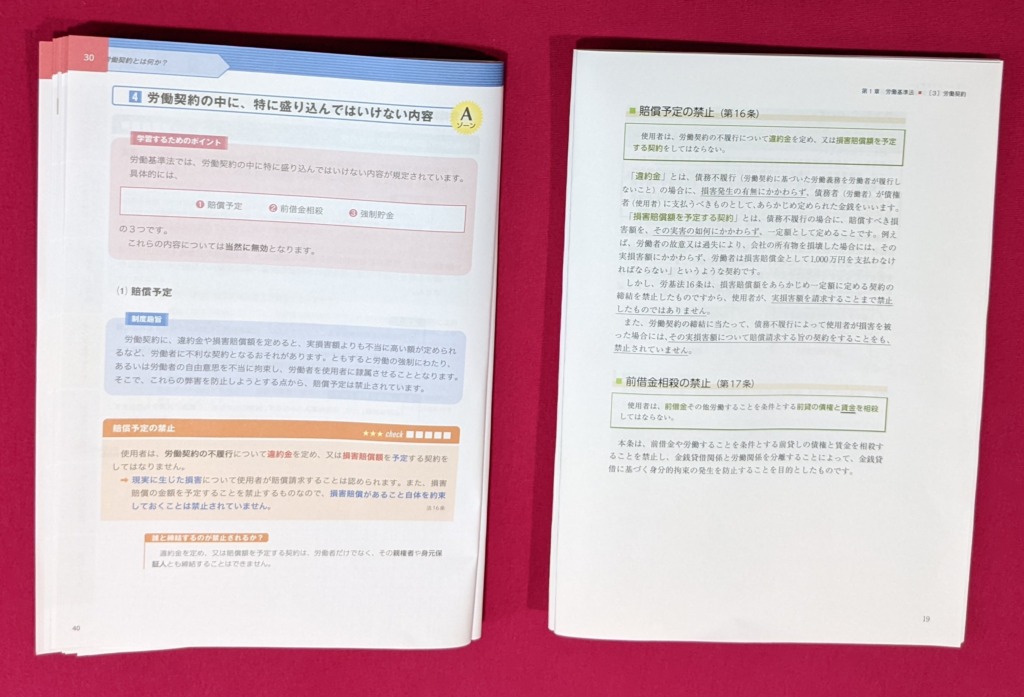 30
労働契約とは何か？
4 労働契約の中に、特に盛り込んではいけない内容
A
ゾーン
学習するためのポイント
労働基準法では、労働契約の中に特に盛り込んではいけない内容が規定されています。
具体的には、
❶ 賠償予定 ❷ 前借金相殺 ❸ 強制貯金
の３つです。
これらの内容については当然に無効となります。
(1) 賠償予定
制度趣旨
労働契約に、違約金や損害賠償額を定めると、実損害額よりも不当に高い額が定められ
るなど、労働者に不利な契約となるおそれがあります。ともすると労働の強制にわたり、
あるいは労働者の自由意思を不当に拘束し、労働者を使用者に隷属させることとなります。
そこで、これらの弊害を防止しようとする点から、賠償予定は禁止されています。
賠償予定の禁止 ★★★ check
使用者は、労働契約の不履行について違約金を定め、又は損害賠償額を予定する契約を
してはなりません。
➡ 現実に生じた損害について使用者が賠償請求することは認められます。また、損害
賠償の金額を予定することを禁止するものなので、損害賠償があること自体を約束
しておくことは禁止されていません。
法16条
誰と締結するのが禁止されるか？
違約金を定め、又は賠償額を予定する契約は、労働者だけでなく、その親権者や身元保
証人とも締結することはできません。
40
第１章 労働基準法 ■ （３）労働契約
■ 賠償予定の禁止（第16条）
使用者は、労働契約の不履行について違約金を定め、又は損害賠償額を予定
する契約をしてはならない。
「違約金」とは、債務不履行（労働契約に基づいた労働義務を労働者が履行し
ないこと）の場合に、損害発生の有無にかかわらず、債務者（労働者）が債権
者（使用者）に支払うべきものとして、あらかじめ定められた金銭をいいます。
「損害賠償額を予定する契約」とは、債務不履行の場合に、賠償すべき損
害額を、その実害の如何にかかわらず、一定額として定めることです。例え
ば、労働者の故意又は過失により、会社の所有物を損壊した場合には、その
実損害額にかかわらず、労働者は損害賠償金として1,000万円を支払わなけ
ればならない」というような契約です。
しかし、労基法16条は、損害賠償額をあらかじめ一定額に定める契約の
締結を禁止したものですから、使用者が、実損害額を請求することまで禁止
したものではありません。
また、労働契約の締結に当たって、債務不履行によって使用者が損害を被
った場合には、その実損害額について賠償請求する旨の契約をすることをも、
禁止されていません。
■ 前借金相殺の禁止（第17条）
使用者は、前借金その他労働することを条件とする前貸の債権と賃金を相殺
してはならない。
本条は、前借金や労働することを条件とする前貸しの債権と賃金を相殺す
ることを禁止し、金銭貸借関係と労働関係を分離することによって、金銭貸
借に基づく身分的拘束の発生を防止することを目的としたものです。
19